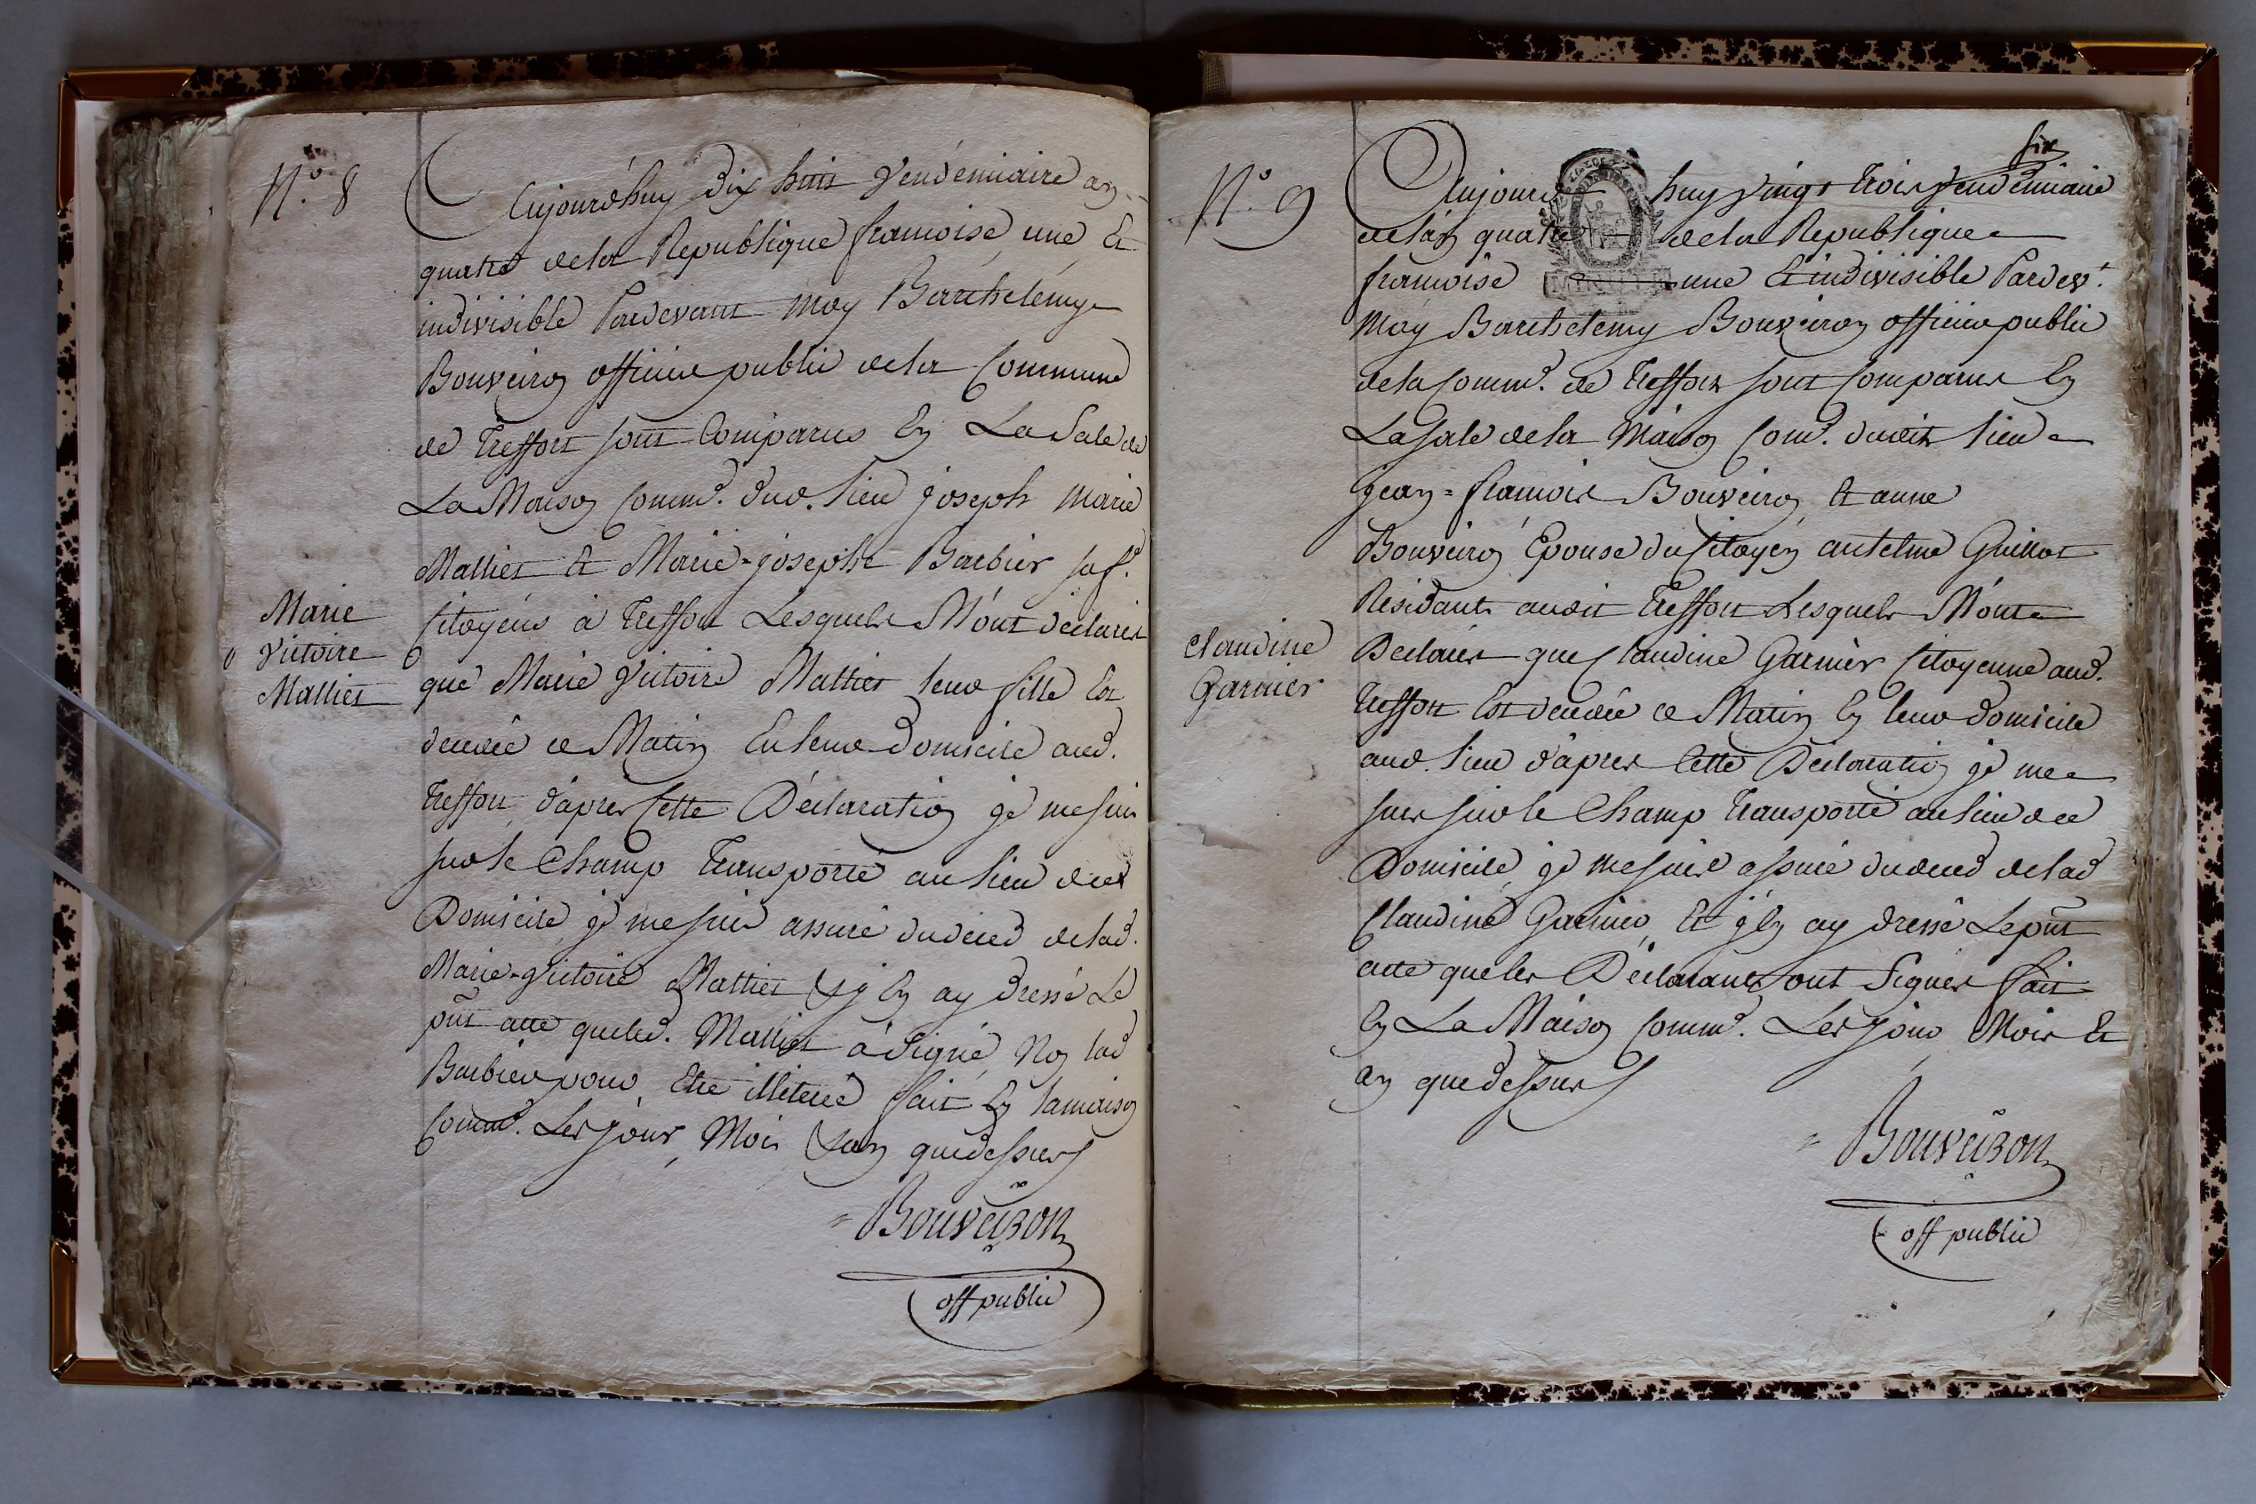 N.° 8
Aujourd'huy dix huit vendémiaire an
quatre dela Republique francoise, une, Et
indivisible Pardevant moy Barthelemy
Bouveiron officier public dela Commune
de Treffort sont Comparus En La Sale de
La Maison Comm.e dud. lieu joseph marie
Mallier et Marie-josephe Barbier sa f.e
Citoyens à Treffort Lesquels M'ont déclarés
Marie
Victoire
Mallier
que Marie Victoire Mallier leur fille Est
decedée ce Matin En leur domicile aud.
Treffort, d'apres Cette Déclaration je me suis
sur le Champ Transporté au lieu dud
Domicile, je me suis assuré du deced delad.
Marie-Victoire Mallier & j'En ay dressé Le
pnt acte queled. Mallier à signé, Non lad
Barbier pour Etre illiterée fait En lamaison
Comm.e Les jour, Mois & an quedessus
Bouveiron
off public
N.° 9
six
Aujourd'huy vingt trois vendémiaire
delan quatre dela Republique
francoise une Et indivisible Pardev.t
Moy Barthelemy Bouveiron officier public
dela Comm.e de Treffort sont Comparus En
La sale dela Maison Com.e dudit lieu
jean=francois Bouveiron, Et anne
Bouveiron Epouse du Citoyen antelme Guillot
Residants audit Treffort Lesquels M'ont
Claudine
Garnier
Declarés que Claudine Garnier Citoyenne aud.
Treffort Est decedée ce Matin En leur domicile
aud. lieu d'apres Cette Déclaration je me
suis sur le Champ Transporté au lieu dud
Domicile, je me suis assuré du deced delad
Claudine Garnier, Et j'En ay dressé Le pnt
acte queles Déclarants ont Signés fait
En La Maison Comm.e Les jour Mois Et
an quedessus
Bouveiron
off public